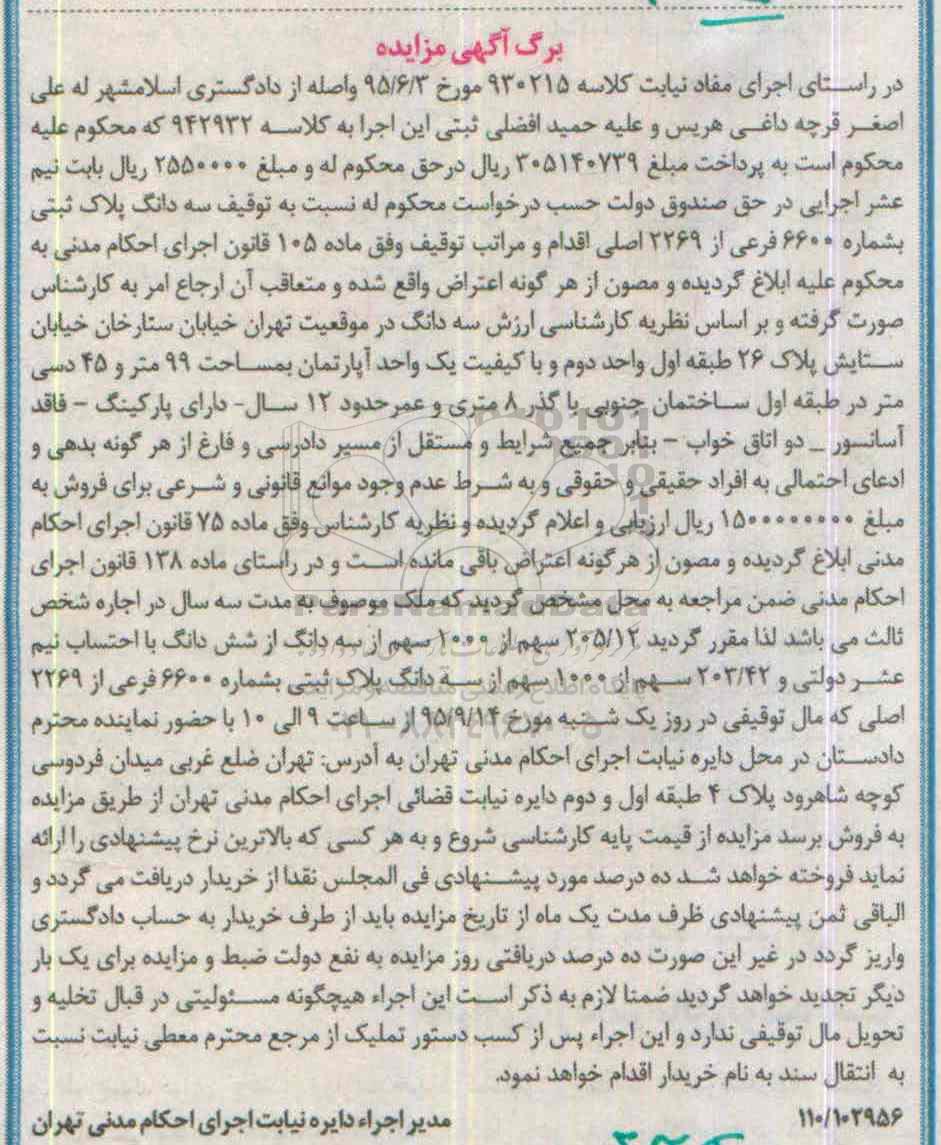 برگ آگهی مزایده
در راستای اجرای مفاد نیابت کلاسه ۹۳۰۲۱۵ مورخ ۹۵/۶/۳ واصله از دادگستری اسلامشهر له علی
اصغر قرچه داغی هریس و علیه حمید افضلی ثبتی این اجرا به کلاسه ۹۴۲۹۳۲ که محکوم علیه
محکوم است به پرداخت مبلغ ۳۰۵۱۴۰۷۳۹ ریال درحق محکوم له و مبلغ ۲۵۵۰۰۰۰ ریال بابت نیم
عشر اجرایی در حق صندوق دولت حسب درخواست محکوم له نسبت به توقیف سه دانگ پلاک ثبتی
بشماره ۶۶۰۰ فرعی از ۲۲۶۹ اصلی اقدام و مراتب توقیف وفق ماده ۱۰۵ قانون اجرای احکام مدنی به
محکوم علیه ابلاغ گردیده و مصون از هر گونه اعتراض واقع شده و متعاقب آن ارجاع امر به کارشناس
صورت گرفته و بر اساس نظریه کارشناسی ارزش سه دانگ در موقعیت تهران خیابان ستارخان خیابان
ستایش پلاک ۲۶ طبقه اول واحد دوم و با کیفیت یک واحد آپارتمان بمساحت ۹۹ متر و ۴۵ دسی
متر در طبقه اول ساختمان جنوبی با گذر ۸ متری و عمر حدود ۱۲ سال- دارای پارکینگ - فاقد
آسانسور _ دو اتاق خواب - بنابر جمیع شرایط و مستقل از مسیر دادرسی و فارغ از هر گونه بدهی و
ادعای احتمالی به افراد حقیقی و حقوقی و به شرط عدم وجود موانع قانونی و شرعی برای فروش به
مبلغ ۱۵۰۰۰۰۰۰۰۰ ریال ارزیابی و اعلام گردیده و نظریه کارشناس وفق ماده ۷۵ قانون اجرای احکام
مدنی ابلاغ گردیده و مصون از هرگونه اعتراض باقی مانده است و در راستای ماده ۱۳۸ قانون اجرای
احکام مدنی ضمن مراجعه به محل مشخص گردید که ملک موصوف به مدت سه سال در اجاره شخص
ثالث می باشد لذا مقرر گردید ۲۰۵/۱۲ سهم از ۱۰۰۰ سهم از سه دانگ از شش دانگ با احتساب نیم
عشر دولتی و ۲۰۳/۴۲ سهم از ۱۰۰۰ سهم از سه دانگ پلاک ثبتی بشماره ۶۶۰۰ فرعی از ۲۲۶۹
اصلی که مال توقیفی در روز یک شنبه مورخ ۹۵/۹/۱۴ از ساعت ۹ الی ۱۰ با حضور نماینده محترم
دادستان در محل دایره نیابت اجرای احکام مدنی تهران به آدرس: تهران ضلع غربی میدان فردوسی
کوچه شاهرود پلاک ۴ طبقه اول و دوم دایره نیابت قضائی اجرای احکام مدنی تهران از طریق مزایده
به فروش برسد مزایده از قیمت پایه کارشناسی شروع و به هر کسی که بالاترین نرخ پیشنهادی را ارائه
نماید فروخته خواهد شد ده درصد مورد پیشنهادی فی المجلس نقدا از خریدار دریافت می گردد و
الباقی ثمن پیشنهادی ظرف مدت یک ماه از تاریخ مزایده باید از طرف خریدار به حساب دادگستری
واریز گردد در غیر این صورت ده درصد دریافتی روز مزایده به نفع دولت ضبط و مزایده برای یک بار
دیگر تجدید خواهد گردید ضمنا لازم به ذکر است این اجراء هیچگونه مسئولیتی در قبال تخلیه و
تحویل مال توقیفی ندارد و این اجراء پس از کسب دستور تملیک از مرجع محترم معطی نیابت نسبت
به انتقال سند به نام خریدار اقدام خواهد نمود.
۱۱۰/۱۰۲۹۵۶ مدیر اجراء دایره نیابت اجرای احکام مدنی تهران